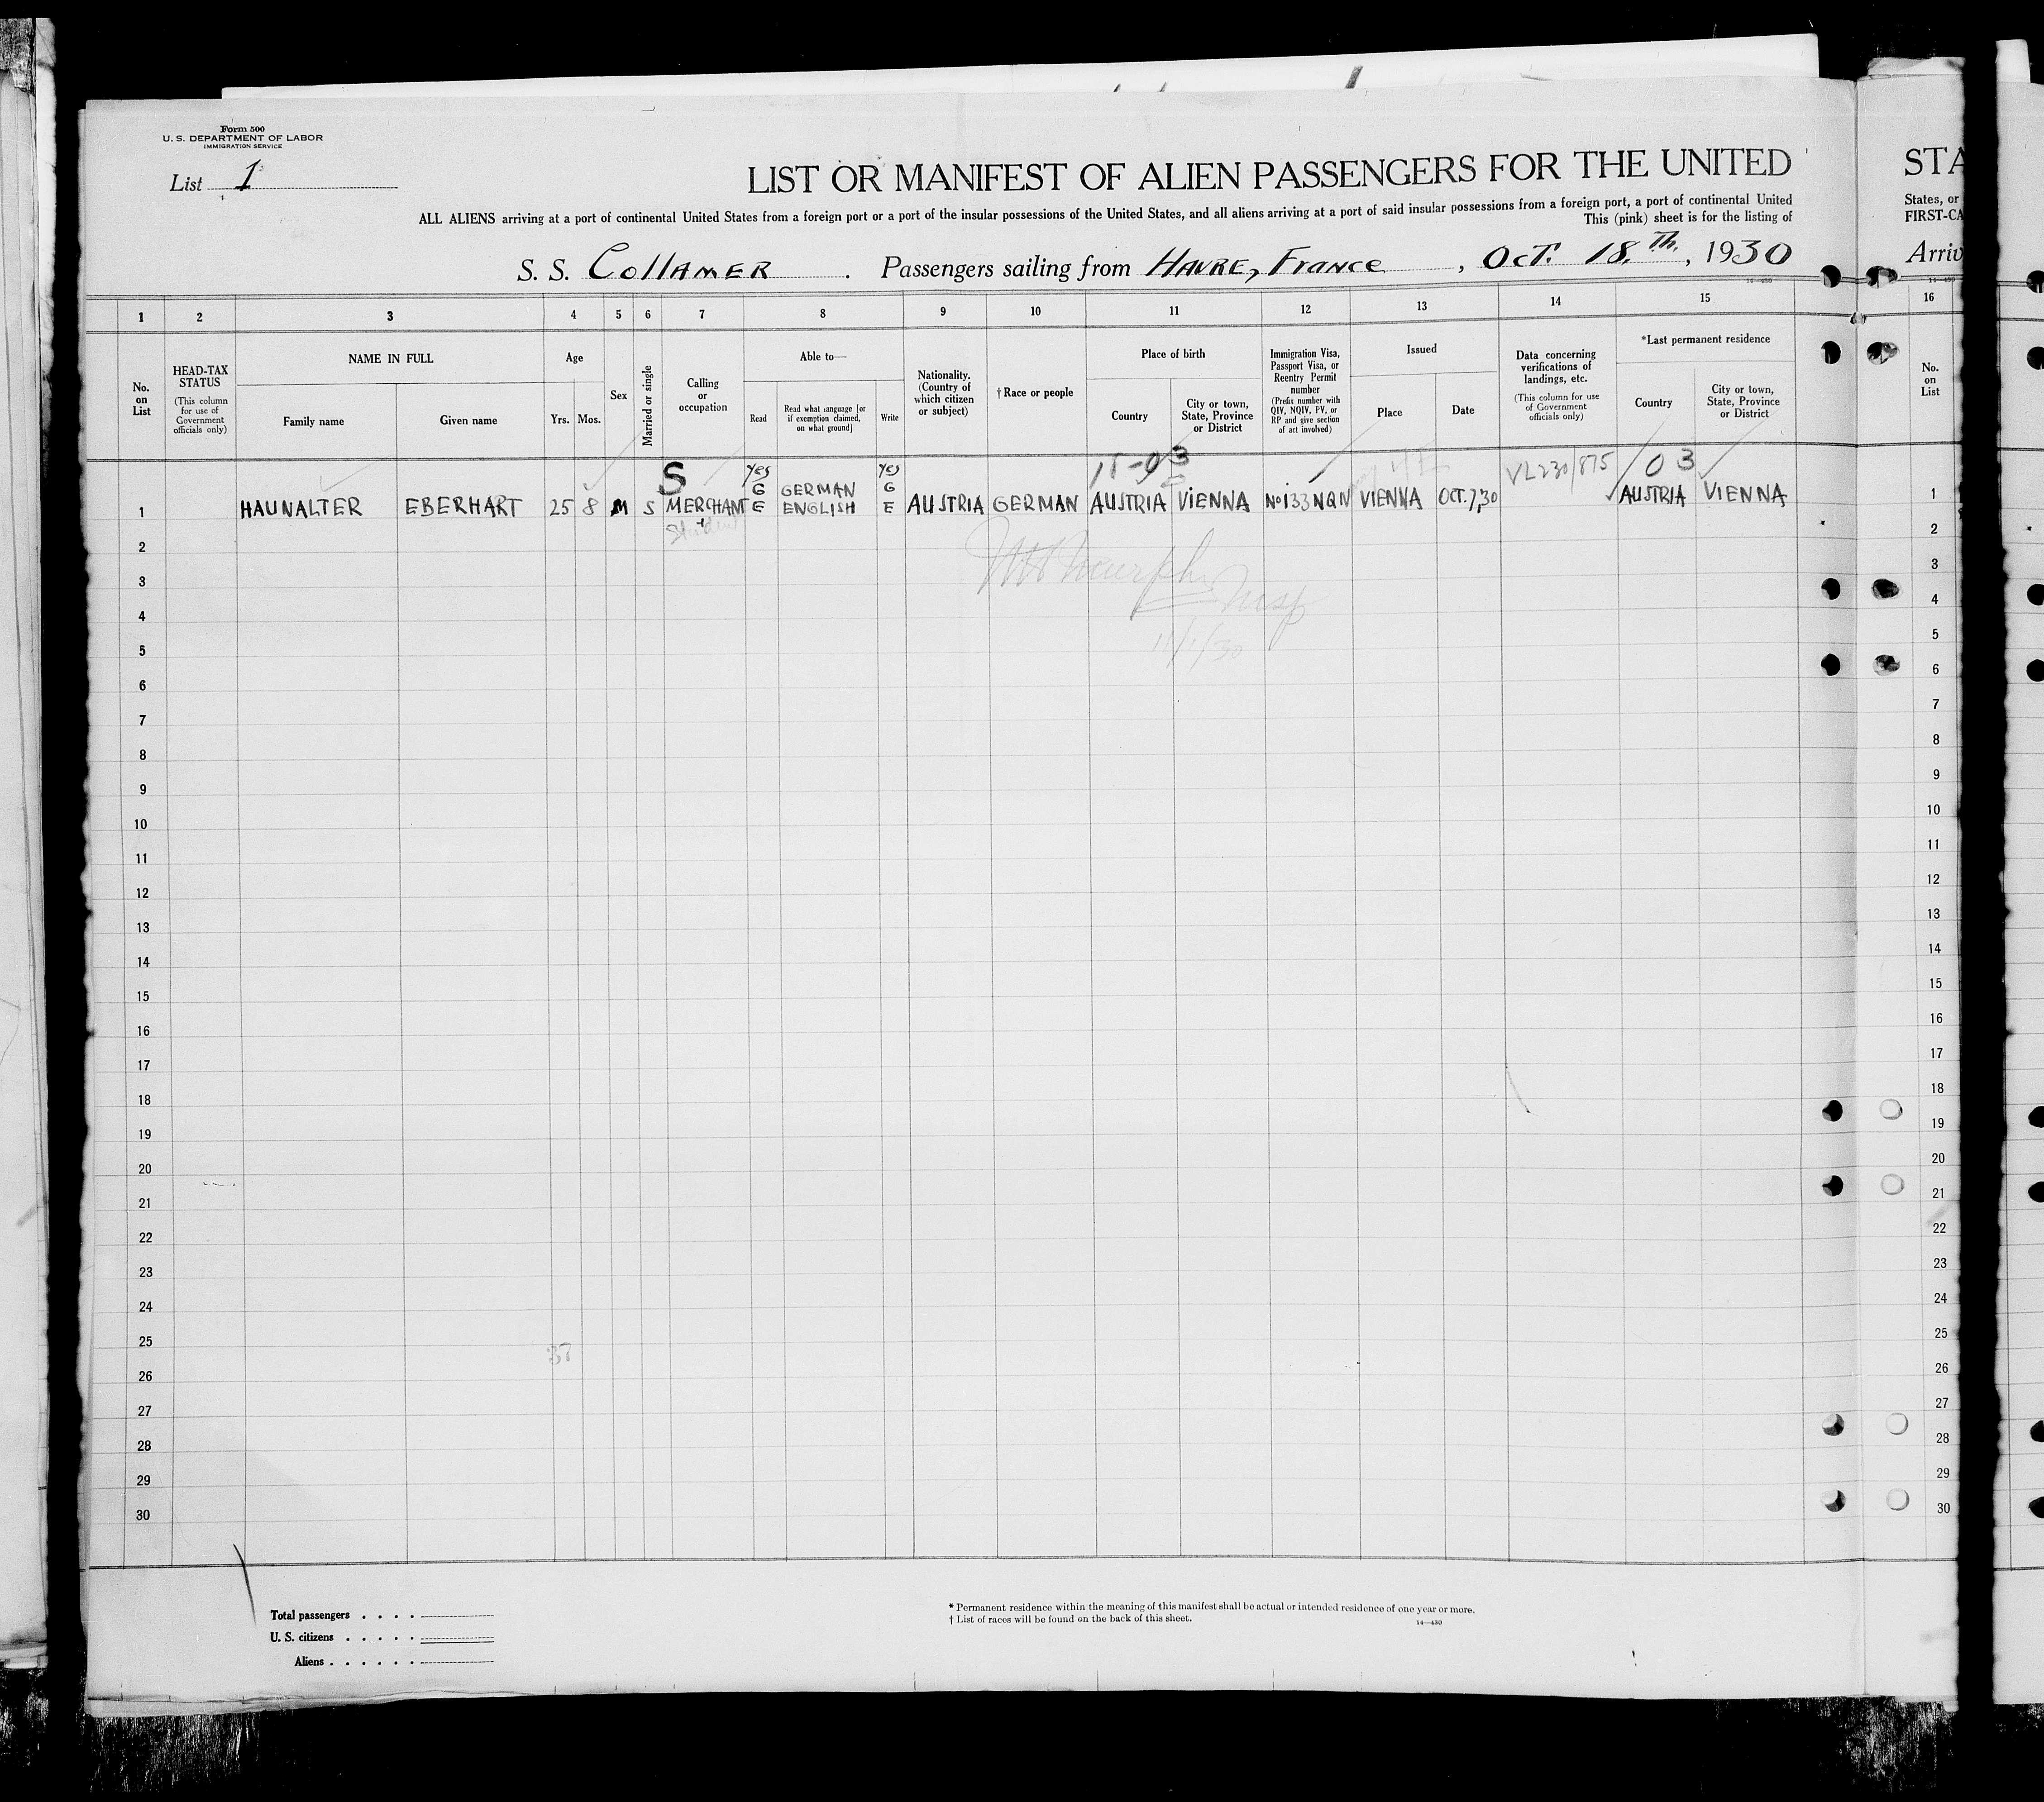 Form 500
U. S. DEPARTMENT OF LABOR
IMMIGRATION SERVICE
List 1
LIST OR MANIFEST OF ALIEN PASSENGERS FOR THE UNITED
ALL ALIENS arriving at a port of continental United States from a foreign port or a port of the insular possessions of the United States, and all aliens arriving at a port of said insular possessions from a foreign port, a port of continental United
This (pink) sheet is for the listing of
S. S. COLLAMER . Passengers sailing from HAVRE, FRANCE , OCT. 18.Th. , 1930
14—430
STA
States, or
FIRST-CA
Arriv
1 2 3 4 5 6 7 8 9 10 11 12 13 14 15 16
No. on List
HEAD-TAX STATUS
(This column for use of Government officials only)
NAME IN FULL
Family name
Given name
Age
Yrs. Mos.
Sex
Married or single
Calling or occupation
Able to—
Read
Read what language [or if exemption claimed, on what ground]
Write
Nationality. (Country of which citizen or subject)
† Race or people
Place of birth
Country
City or town, State, Province or District
Immigration Visa, Passport Visa, or Reentry Permit number
(Prefix number with QIV, NQIV, PV, or RP and give section of act involved)
Issued
Place
Date
Data concerning verifications of landings, etc.
(This column for use of Government officials only)
*Last permanent residence
Country
City or town, State, Province or District
No. on List
S Yes Yes 15-03 VL230/875 03
G GERMAN G
1 HAUNALTER EBERHART 25 8 M S MERCHANT E ENGLISH E AUSTRIA GERMAN AUSTRIA VIENNA No 133 NQIV VIENNA OCT.7,30 AUSTRIA VIENNA 1
Student
2 2
3 Murphy 3
4 Insp 4
5 11/1/30 5
6 6
7 7
8 8
9 9
10 10
11 11
12 12
13 13
14 14
15 15
16 16
17 17
18 18
19 19
20 20
21 21
22 22
23 23
24 24
25 25
26 26
27 27
28 28
29 29
30 30
Total passengers . . . .
U. S. citizens . . . . .
Aliens . . . . . .
* Permanent residence within the meaning of this manifest shall be actual or intended residence of one year or more.
† List of races will be found on the back of this sheet.
14—430